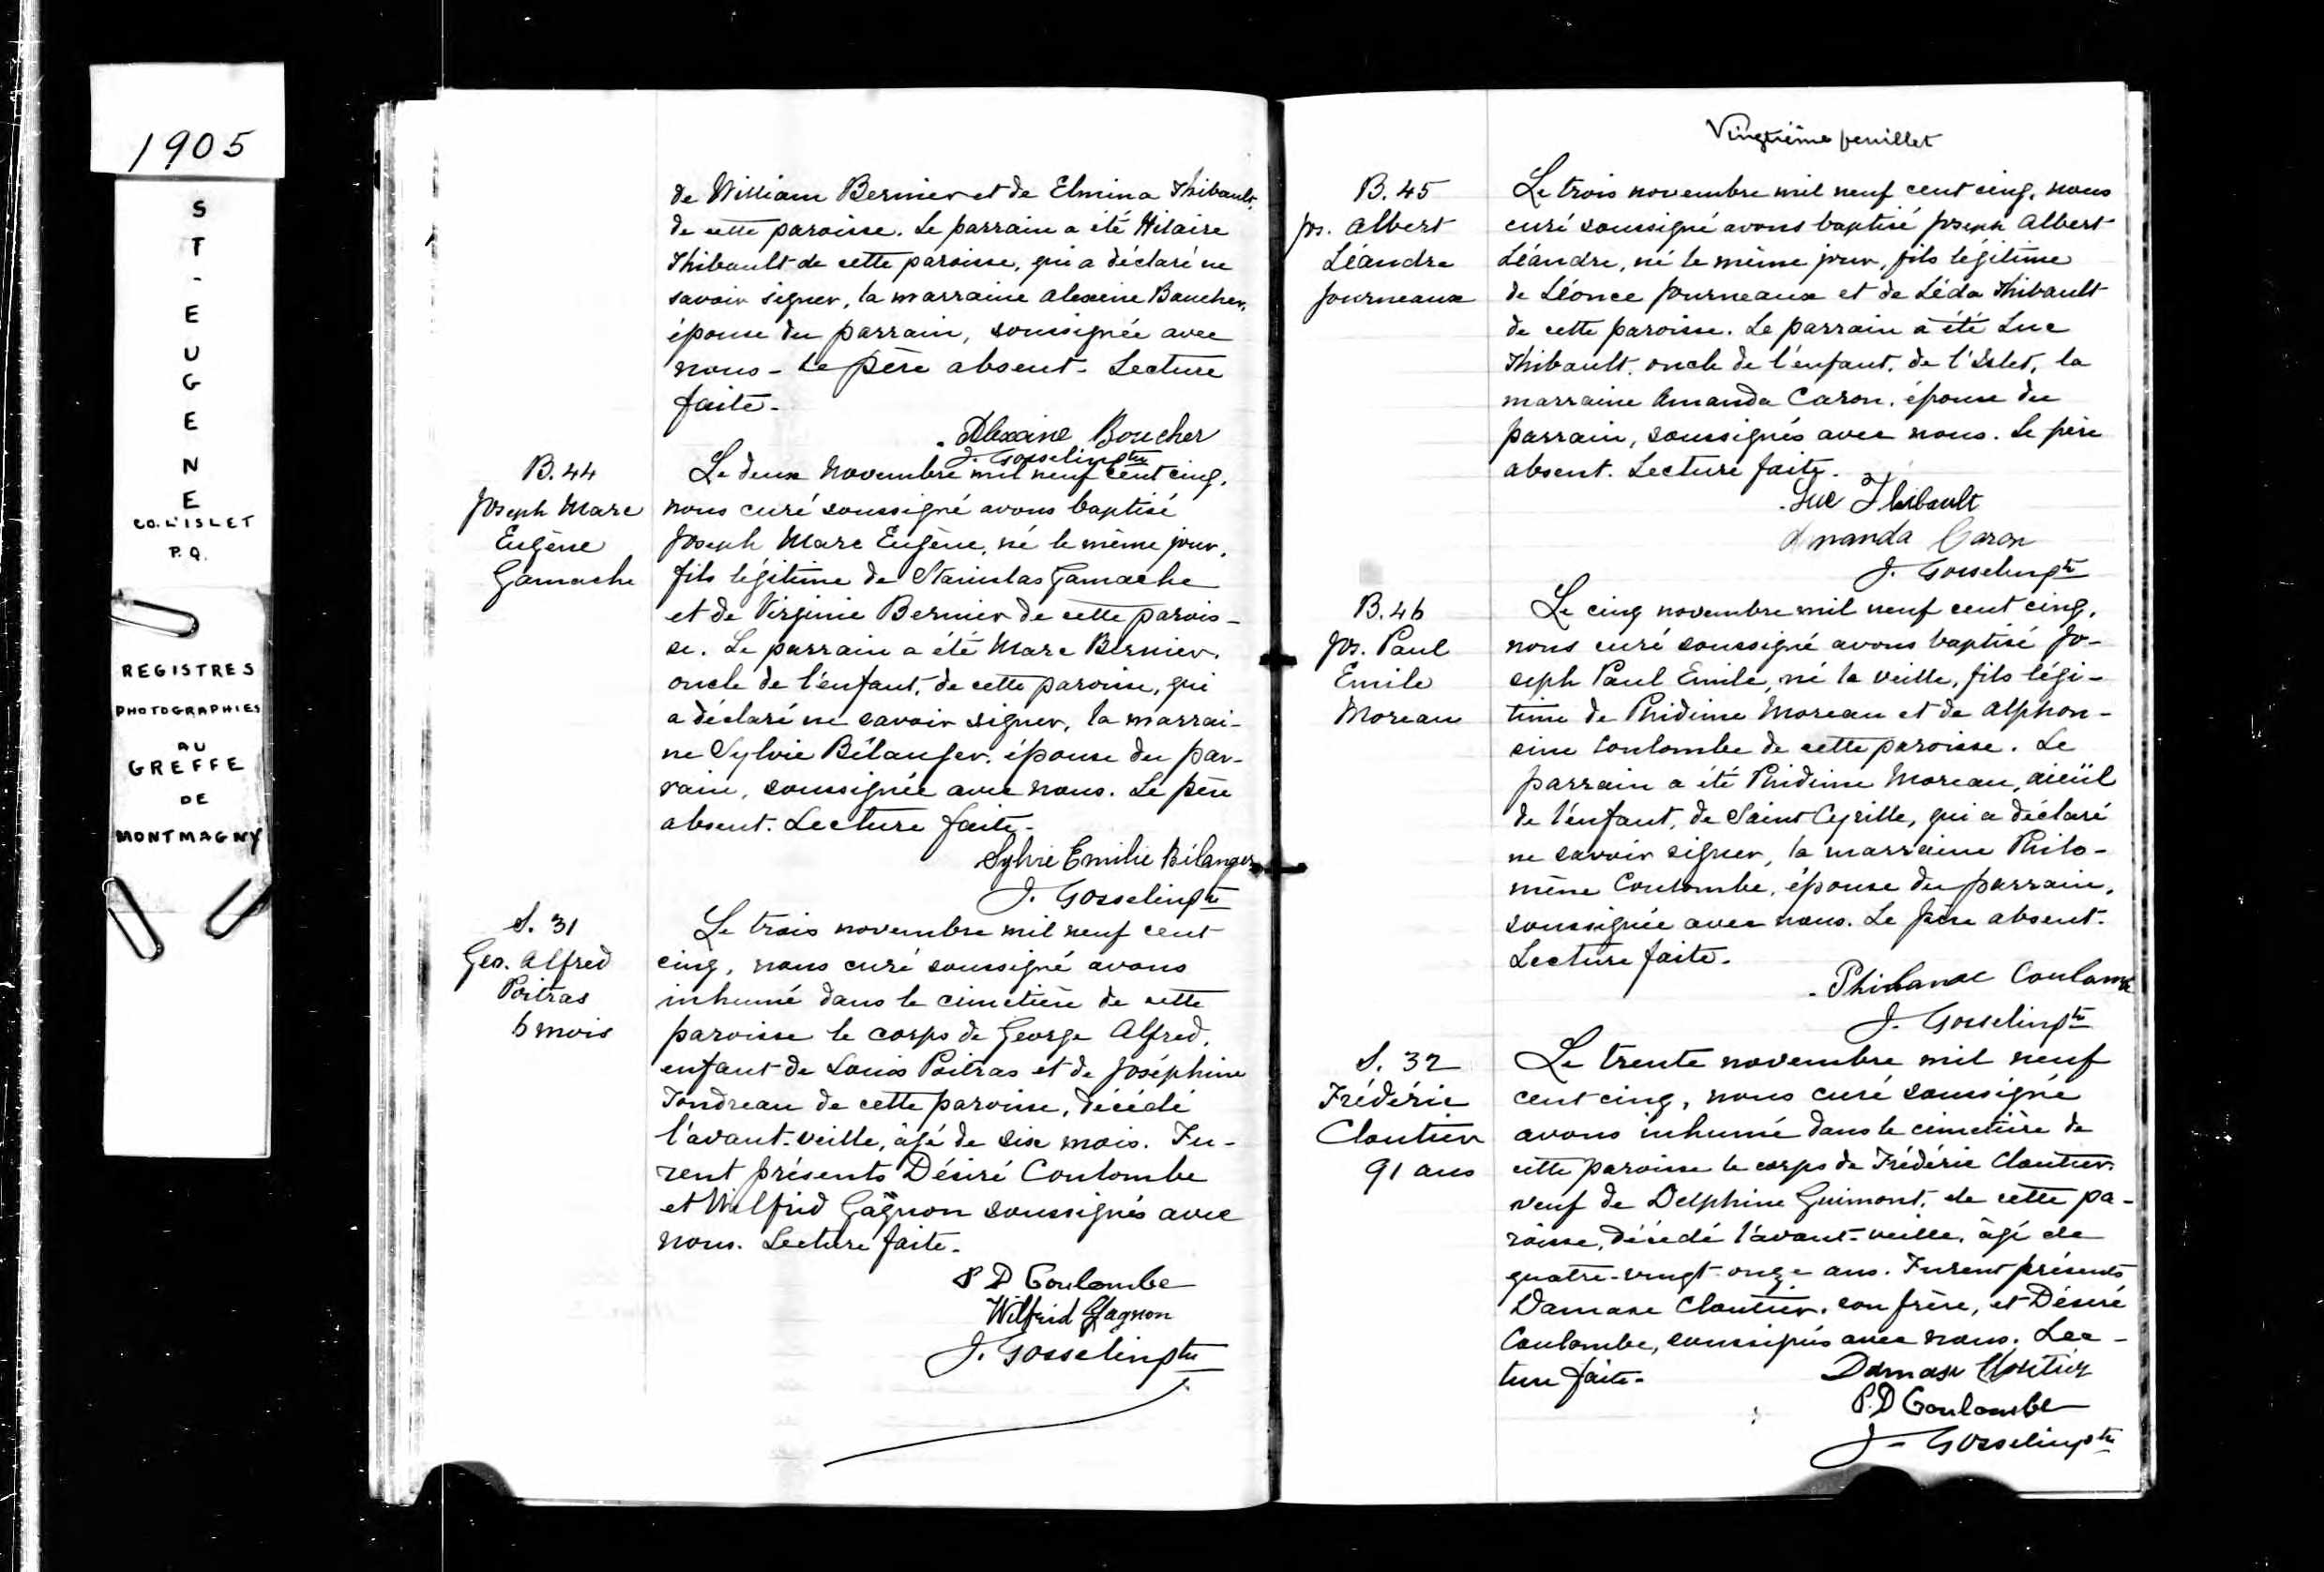 1905
S
T
-
E
U
G
E
N
E
CO. L'ISLET
P.Q.
REGISTRES
PHOTOGRAPHIES
AU
GREFFE
DE
MONTMAGNY
de William Bernier et de Elmina Thibault,
de cette paroisse. Le parrain a été Hilaire
Thibault de cette paroisse, qui a déclaré ne
savoir signer, la marraine Alexine Boucher,
épouse du parrain, soussignée avec
nous - Le père absent - Lecture
faite -
Alexine Boucher
J. Gosselin ptre
B. 44
Joseph Marc
Eugène
Gamache
Le deux Novembre mil neuf cent cinq,
nous curé soussigné avons baptisé
Joseph Marc Eugène, né le même jour,
fils légitime de Stanislas Gamache
et de Virginie Bernier de cette parois-
se. Le parrain a été Marc Bernier,
oncle de l'enfant, de cette paroisse, qui
a déclaré ne savoir signer, la marrai-
ne Sylvie Bélanger, épouse du par-
rain, soussignée avec nous. Le père
absent. Lecture faite -
Sylvie Emilie Bélanger
J. Gosselin ptre
S. 31
Geo. Alfred
Poitras
6 mois
Le trois novembre mil neuf cent
cinq, nous curé soussigné avons
inhumé dans le cimetière de cette
paroisse le corps de George Alfred,
enfant de Louis Poitras et de Joséphine
Tondreau de cette paroisse, décédé
l'avant-veille, âgé de six mois. Fu-
rent présents Désiré Coulombe
et Wilfrid Gagnon soussignés avec
nous. Lecture faite -
P D Coulombe
Wilfrid Gagnon
J. Gosselin ptre
Vingtième feuillet
B. 45
Jos. Albert
Léandre
Journeaux
Le trois novembre mil neuf cent cinq, nous
curé soussigné avons baptisé Joseph Albert
Léandre, né le même jour, fils légitime
de Léonce Journeaux et de Léda Thibault
de cette paroisse. Le parrain a été Luc
Thibault, oncle de l'enfant, de l'Islet, la
marraine Amanda Caron, épouse du
parrain, soussignés avec nous. Le père
absent. Lecture faite.
Luc Thibault
Amanda Caron
J. Gosselin ptre
B. 46
Jos. Paul
Emile
Moreau
Le cinq novembre mil neuf cent cinq,
nous curé soussigné avons baptisé Jo-
seph Paul Emile, né la veille, fils légi-
time de Phidime Moreau et de Alphon-
sine Coulombe de cette paroisse. Le
parrain a été Phidime Moreau, aieül
de l'enfant, de Saint Cyrille, qui a déclaré
ne savoir signer, la marraine Philo-
mène Coulombe, épouse du parrain,
soussignée avec nous. Le père absent.
Lecture faite.
Coulombe
J. Gosselin ptre
S. 32
Frédéric
Cloutier
91 ans
Le trente novembre mil neuf
cent cinq, nous curé soussigné
avons inhumé dans le cimetière de
cette paroisse le corps de Frédéric Cloutier,
veuf de Delphine Guimont, de cette pa-
roisse, décédé l'avant-veille, âgé de
quatre-vingt-onze ans. Furent présents
Damase Cloutier, son frère, et Désiré
Coulombe, soussignés avec nous. Lec-
ture faite -
Damase Cloutier
P. D Coulombe
J - Gosselin ptre